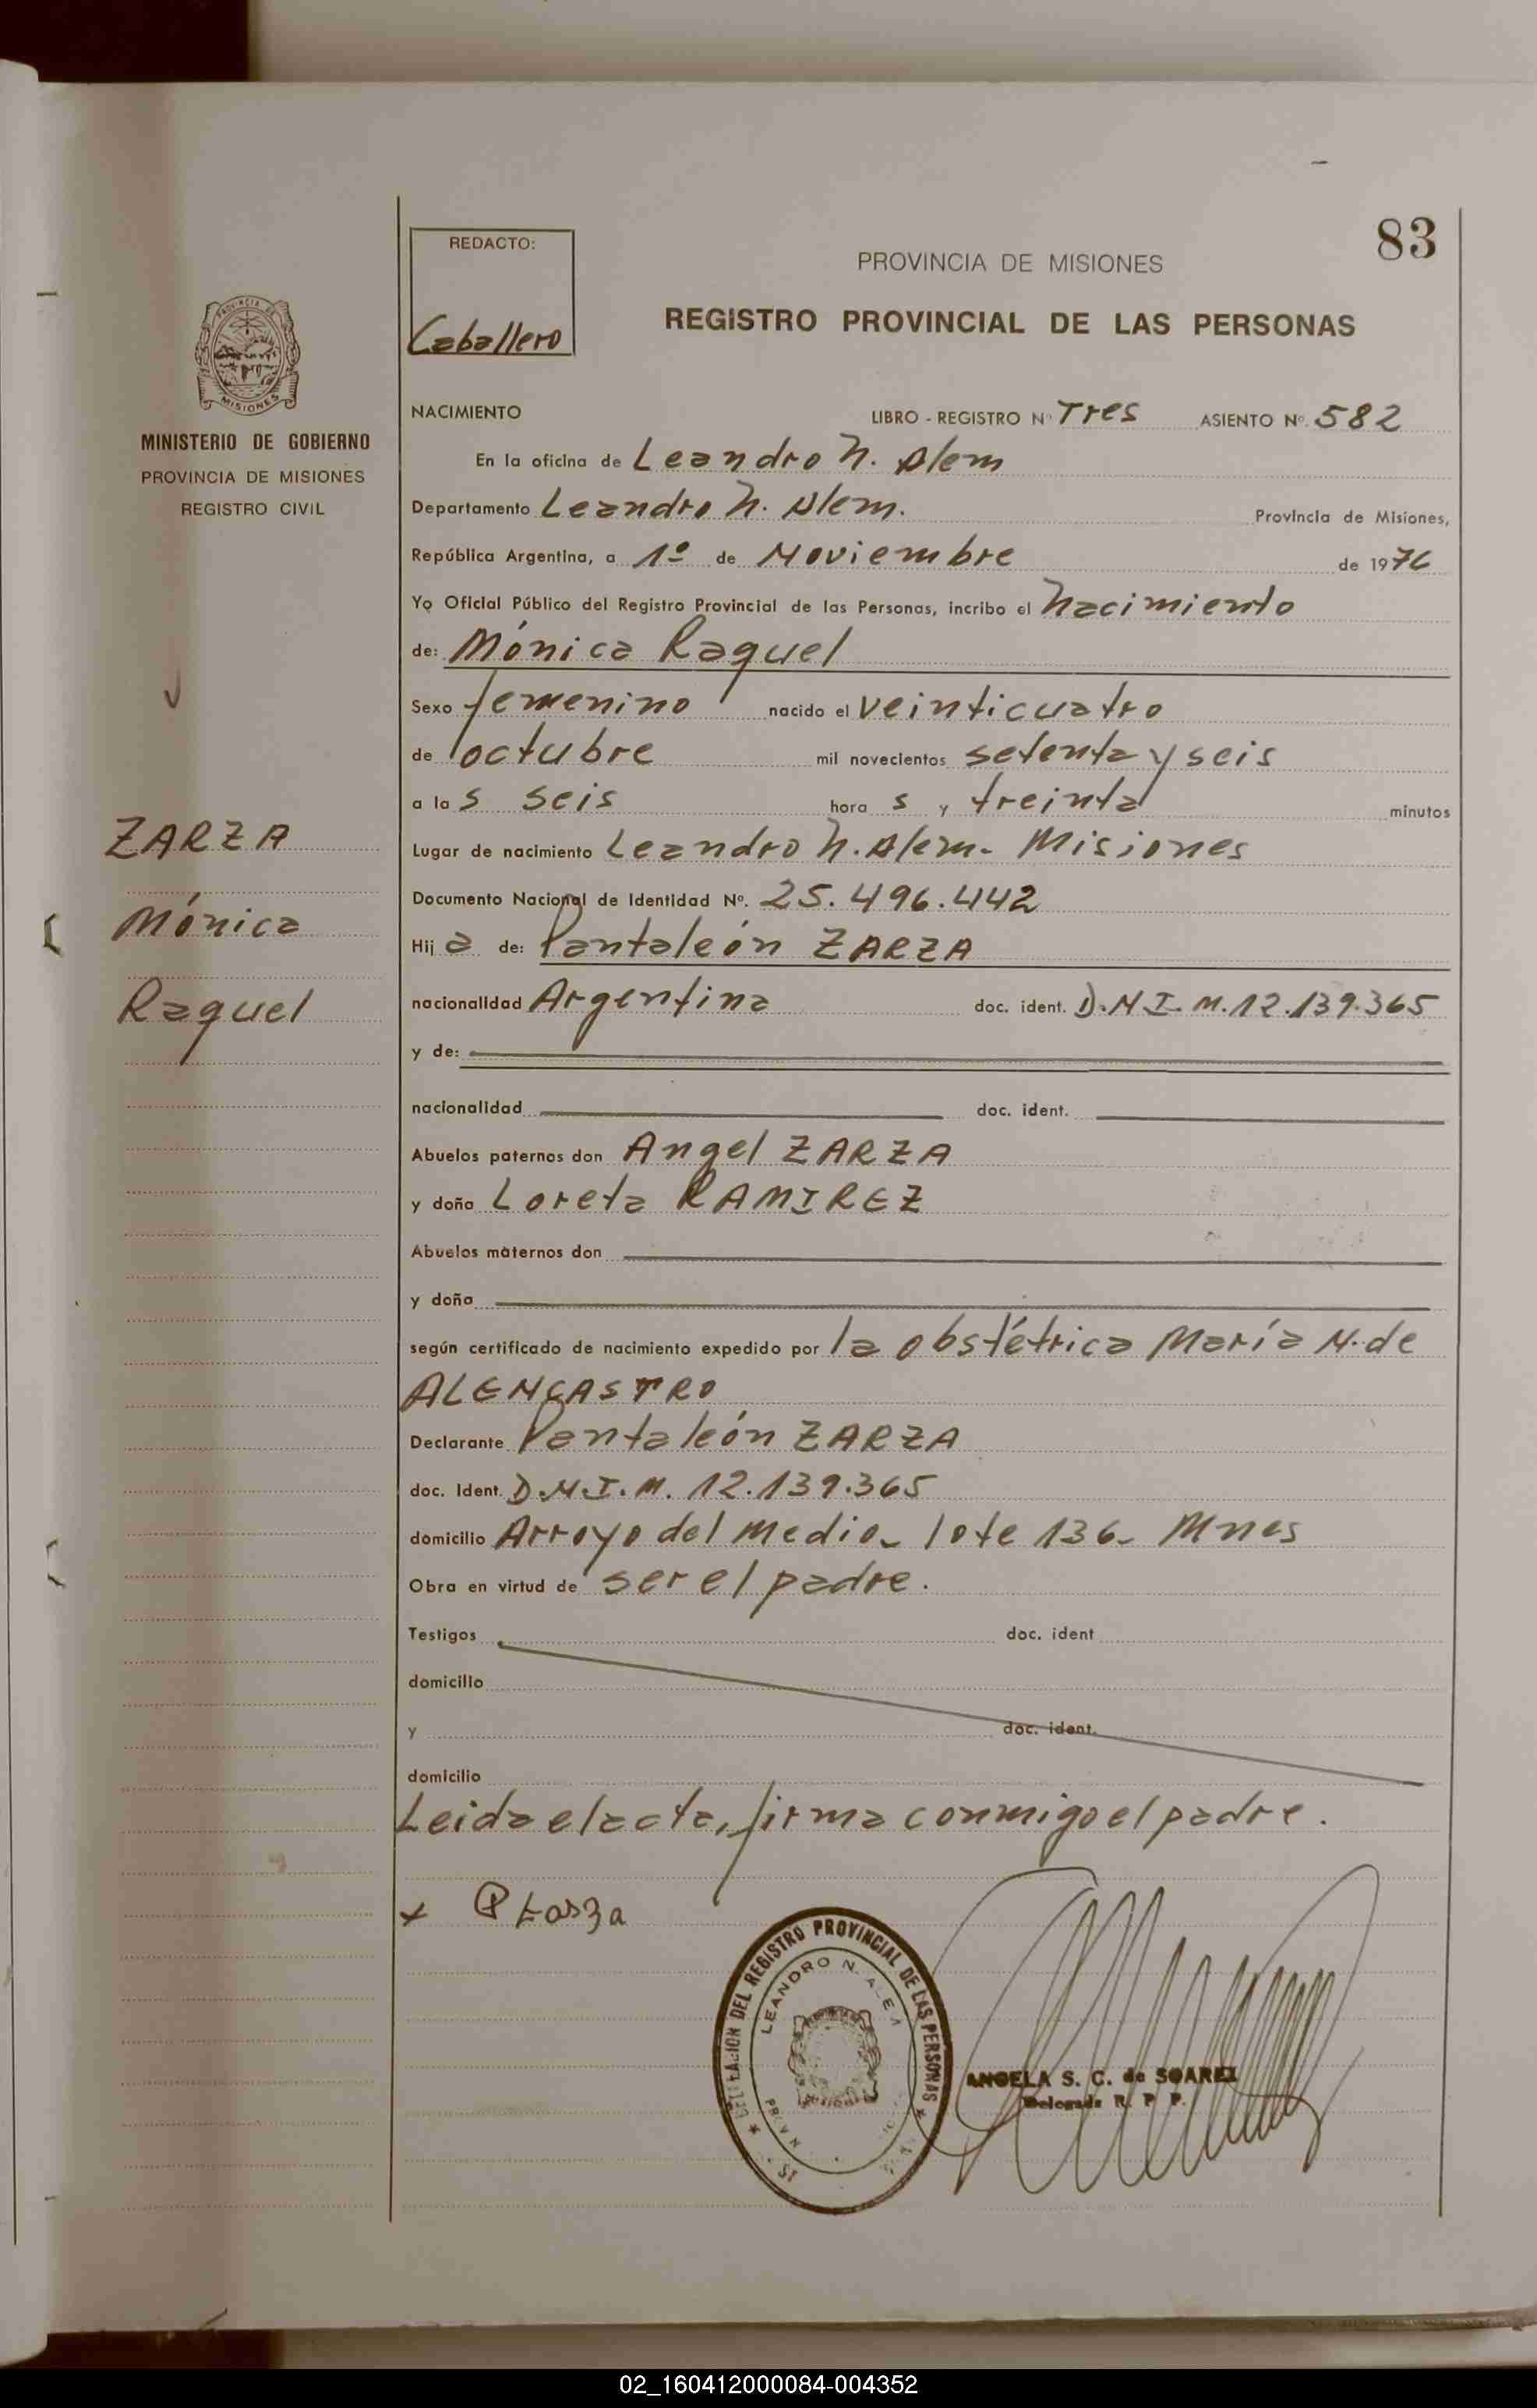 83
REDACTO:
Caballero
PROVINCIA DE MISIONES
REGISTRO PROVINCIAL DE LAS PERSONAS
PROVINCIA DE
MISIONES
MINISTERIO DE GOBIERNO
PROVINCIA DE MISIONES
REGISTRO CIVIL
ZARZA
Mónica
Raquel
NACIMIENTO LIBRO - REGISTRO Nº Tres ASIENTO Nº. 582
En la oficina de Leandro N. Alem
Departamento Leandro N. Alem. Provincia de Misiones,
República Argentina, a 1º de Noviembre de 1976
Yo Oficial Público del Registro Provincial de las Personas, incribo el Nacimiento
de: Mónica Raquel
Sexo femenino nacido el veinticuatro
de octubre mil novecientos setenta y seis
a la s seis hora s y treinta minutos
Lugar de nacimiento Leandro N. Alem- Misiones
Documento Nacional de Identidad Nº. 25.496.442
Hij a de: Pantaleón ZARZA
nacionalidad Argentina doc. ident. D.N.I. M.12.139.365
y de:
nacionalidad doc. ident.
Abuelos paternos don Angel ZARZA
y doña Loreta RAMIREZ
Abuelos maternos don
y doña
según certificado de nacimiento expedido por la obstétrica María N. de
ALENCASTRO
Declarante Pantaleón ZARZA
doc. Ident. D.N.I.M. 12.139.365
domicilio Arroyo del Medio- lote 136- Mnes
Obra en virtud de ser el padre.
Testigos doc. ident
domicilio
y doc. ident.
domicilio
Leida el acta, firma conmigo el padre.
DELEGACION DEL REGISTRO PROVINCIAL DE LAS PERSONAS
LEANDRO N. ALEM
ANGELA S. C. de SOAREZ
Delegada R. P. P.
02_160412000084-004352